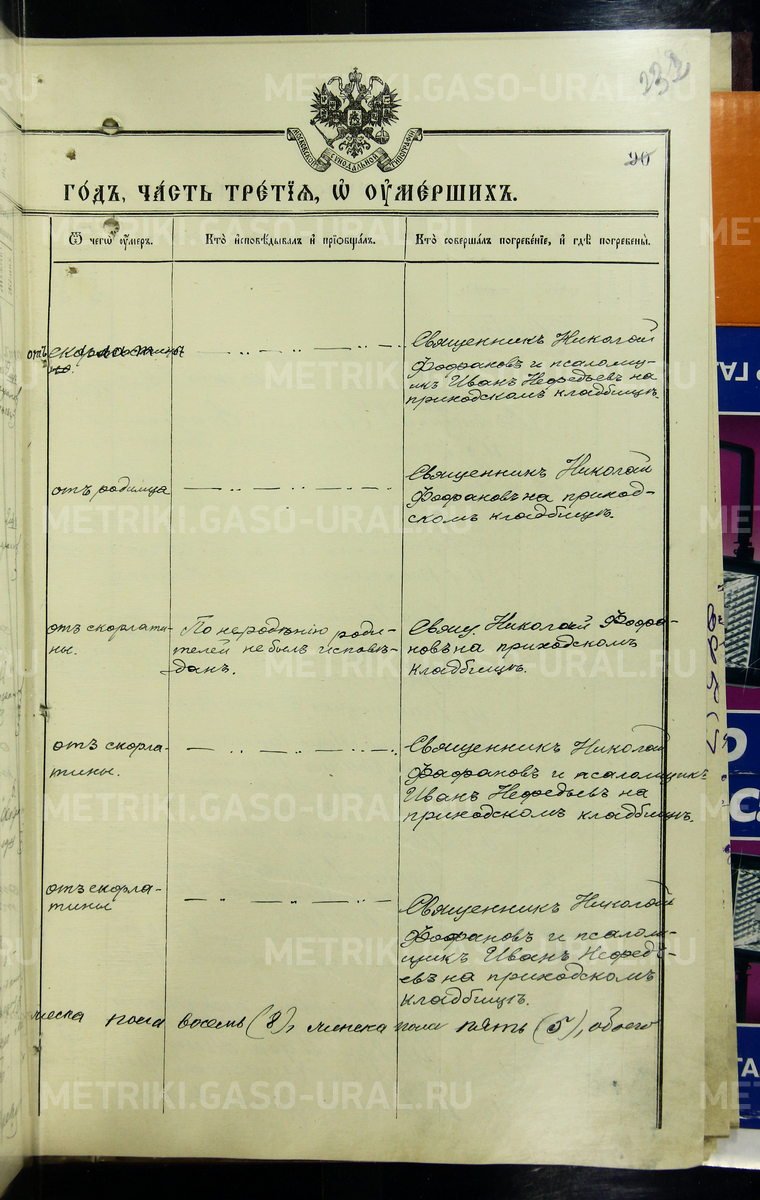 232
20
МОСКОВСКОЙ СѴНОДАЛЬНОЙ ТИПОГРАФІИ
ГО́ДЪ, ЧА́СТЬ ТРЕ́ТЇѦ, Ѡ҆ ОУ҆МЕ́РШИХЪ.
Ѿ чегѡ̀ оу҆́меръ.
Кто̀ и҆сповѣ́дывалъ и҆ прїѡбща́лъ.
Кто̀ соверша́лъ погребе́нїе, и҆ гдѣ̀ погребены̀.
отъ
Священникъ Николай
Фофановъ и псаломщи-
икъ Иванъ Нефедьевъ на
приходскомъ кладбищѣ.
отъ родимца
Священникъ Николай
Фофановъ на приход-
скомъ кладбищѣ.
отъ скорлати-
ны.
По нерадѣнію роди-
телей не былъ исповѣ-
данъ.
Свящ. Николай Фофа-
новъ на приходскомъ
кладбищѣ.
отъ скорла-
тины.
Священникъ Николай
Фофановъ и псаломщикъ
Иванъ Нефедьевъ на
приходскомъ кладбищѣ.
отъ скорла-
тины
Священникъ Николай
Фофановъ и псалом-
щикъ Иванъ Нефедь-
евъ на приходскомъ
кладбищѣ.
пола восемь (8), женска пола пять (5), обоего
METRIKI.GASO-URAL.RU